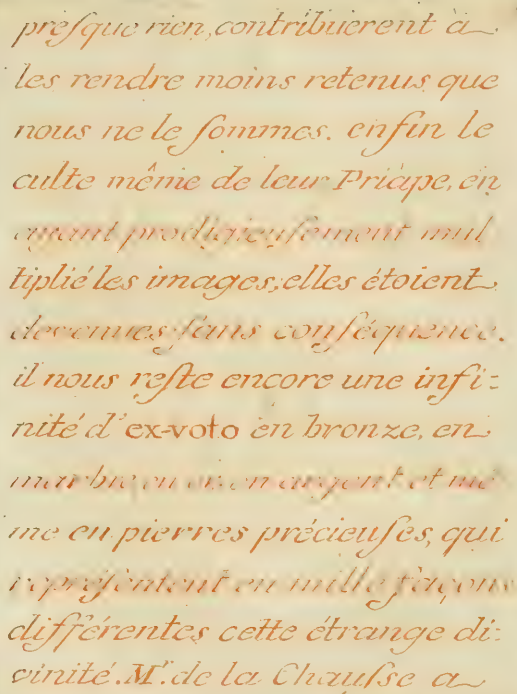 presque rien, contribuerent à
les rendre moins retenus que
nous ne le sommes. enfin le
culte même de leur Priape, en
ayant prodigieusement mul
tiplié les images, elles étoient
devenues sans conséquence.
il nous reste encore une infi=
nité d'ex-voto en bronze, en
marbre, en or, en argent et mê
me en pierres précieuses, qui
représentent en mille façons
différentes cette étrange di=
vinité. Mr. de la Chausse a